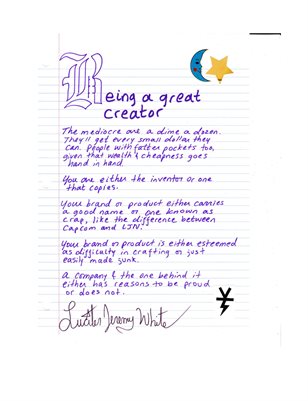 Being a great
creator
The mediocre are a dime a dozen.
They'll get every small dollar they
can. People with fatter pockets too,
given that wealth & cheapness goes
hand in hand.
You are either the inventor or one
that copies.
Your brand or product either carries
a good name or one known as
crap, like the difference between
Capcom and LJN.
Your brand or product is either esteemed
as difficulty in crafting or just
easily made junk.
A company & the one behind it
either has reasons to be proud
or does not.
Lucifer Jeremy White